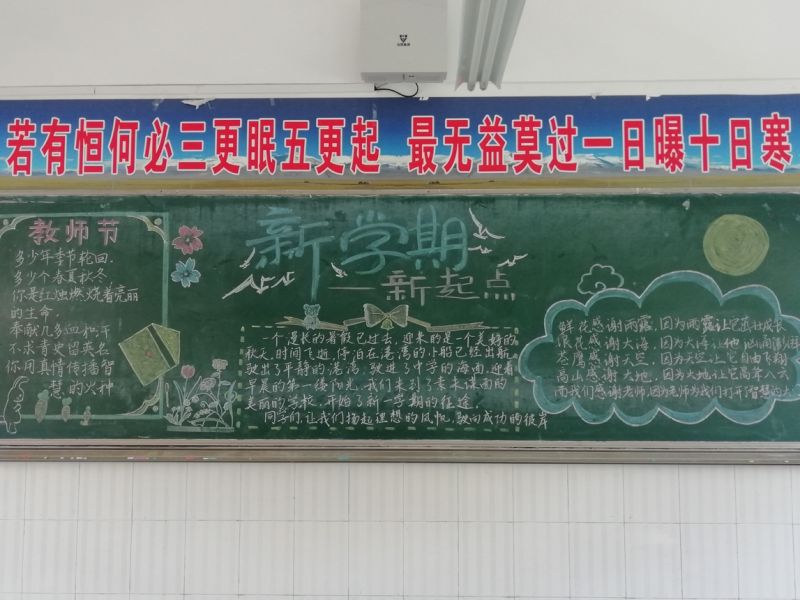 若有恒何必三更眠五更起 最无益莫过一日曝十日寒
教师节
多少年季节轮回
多少个春夏秋冬
你是红烛燃烧着亮丽
的生命.
奉献几多血和汗
不求青史留英名
你用真情传播智
慧的火种
新学期
—新起点
一个漫长的暑假已过去,迎来的是一个美好的
秋天,时间飞逝,停泊在港湾的小船已经出航
驶出了平静的港湾,驶进了中学的海面,迎着
早晨的第一缕阳光,我们来到了素未谋面的
美丽的学校,开始了新一学期的征途
同学们,让我们扬起理想的风帆,驶向成功的彼岸
鲜花感谢雨露,因为雨露让它茁壮成长
浪花感谢大海,因为大海让他
苍鹰感谢天空,因为天空让它自由飞翔
高山感谢大地,因为大地让它高耸入云
而我们感谢老师,因为老师为我们打开智慧的大